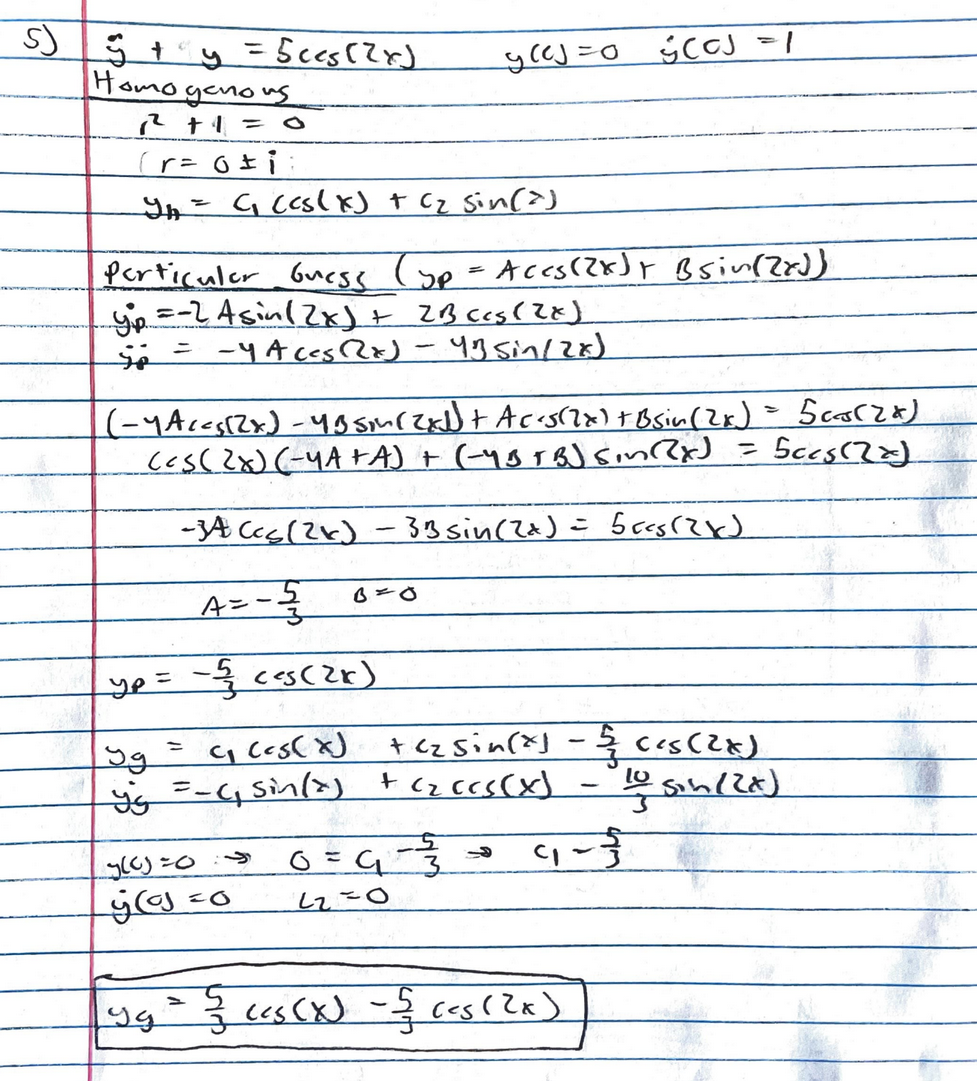 5) ÿ + y = 5cos(2x) y(0)=0 ẏ(0)=1
Homogenous
r² + 1 = 0
r = 0 ± i
y_h = c₁ cos(x) + c₂ sin(x)
Particular Guess (y_p = A cos(2x) + B sin(2x))
ẏ_p = -2A sin(2x) + 2B cos(2x)
ÿ_p = -4A cos(2x) - 4B sin(2x)
(-4A cos(2x) - 4B sin(2x)) + A cos(2x) + B sin(2x) = 5 cos(2x)
cos(2x)(-4A+A) + (-4B+B) sin(2x) = 5cos(2x)
-3A cos(2x) - 3B sin(2x) = 5cos(2x)
A = -5/3 B = 0
y_p = -5/3 cos(2x)
y_g = c₁ cos(x) + c₂ sin(x) - 5/3 cos(2x)
ẏ_g = -c₁ sin(x) + c₂ cos(x) - 10/3 sin(2x)
y(0)=0 ⇒ 0 = c₁ - 5/3 ⇒ c₁ - 5/3
ẏ(0)=0 c₂=0
y_g = 5/3 cos(x) - 5/3 cos(2x)